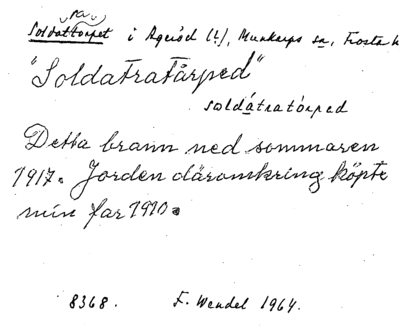 ra
Soldattorpet i Ageröd (?), Munkarps sn, Frosta h
"Soldatratårped"
soldátratòrped
Detta brann ned sommaren
1917. Jorden däromkring köpte
min far 1910.
8368. F. Wendel 1964.